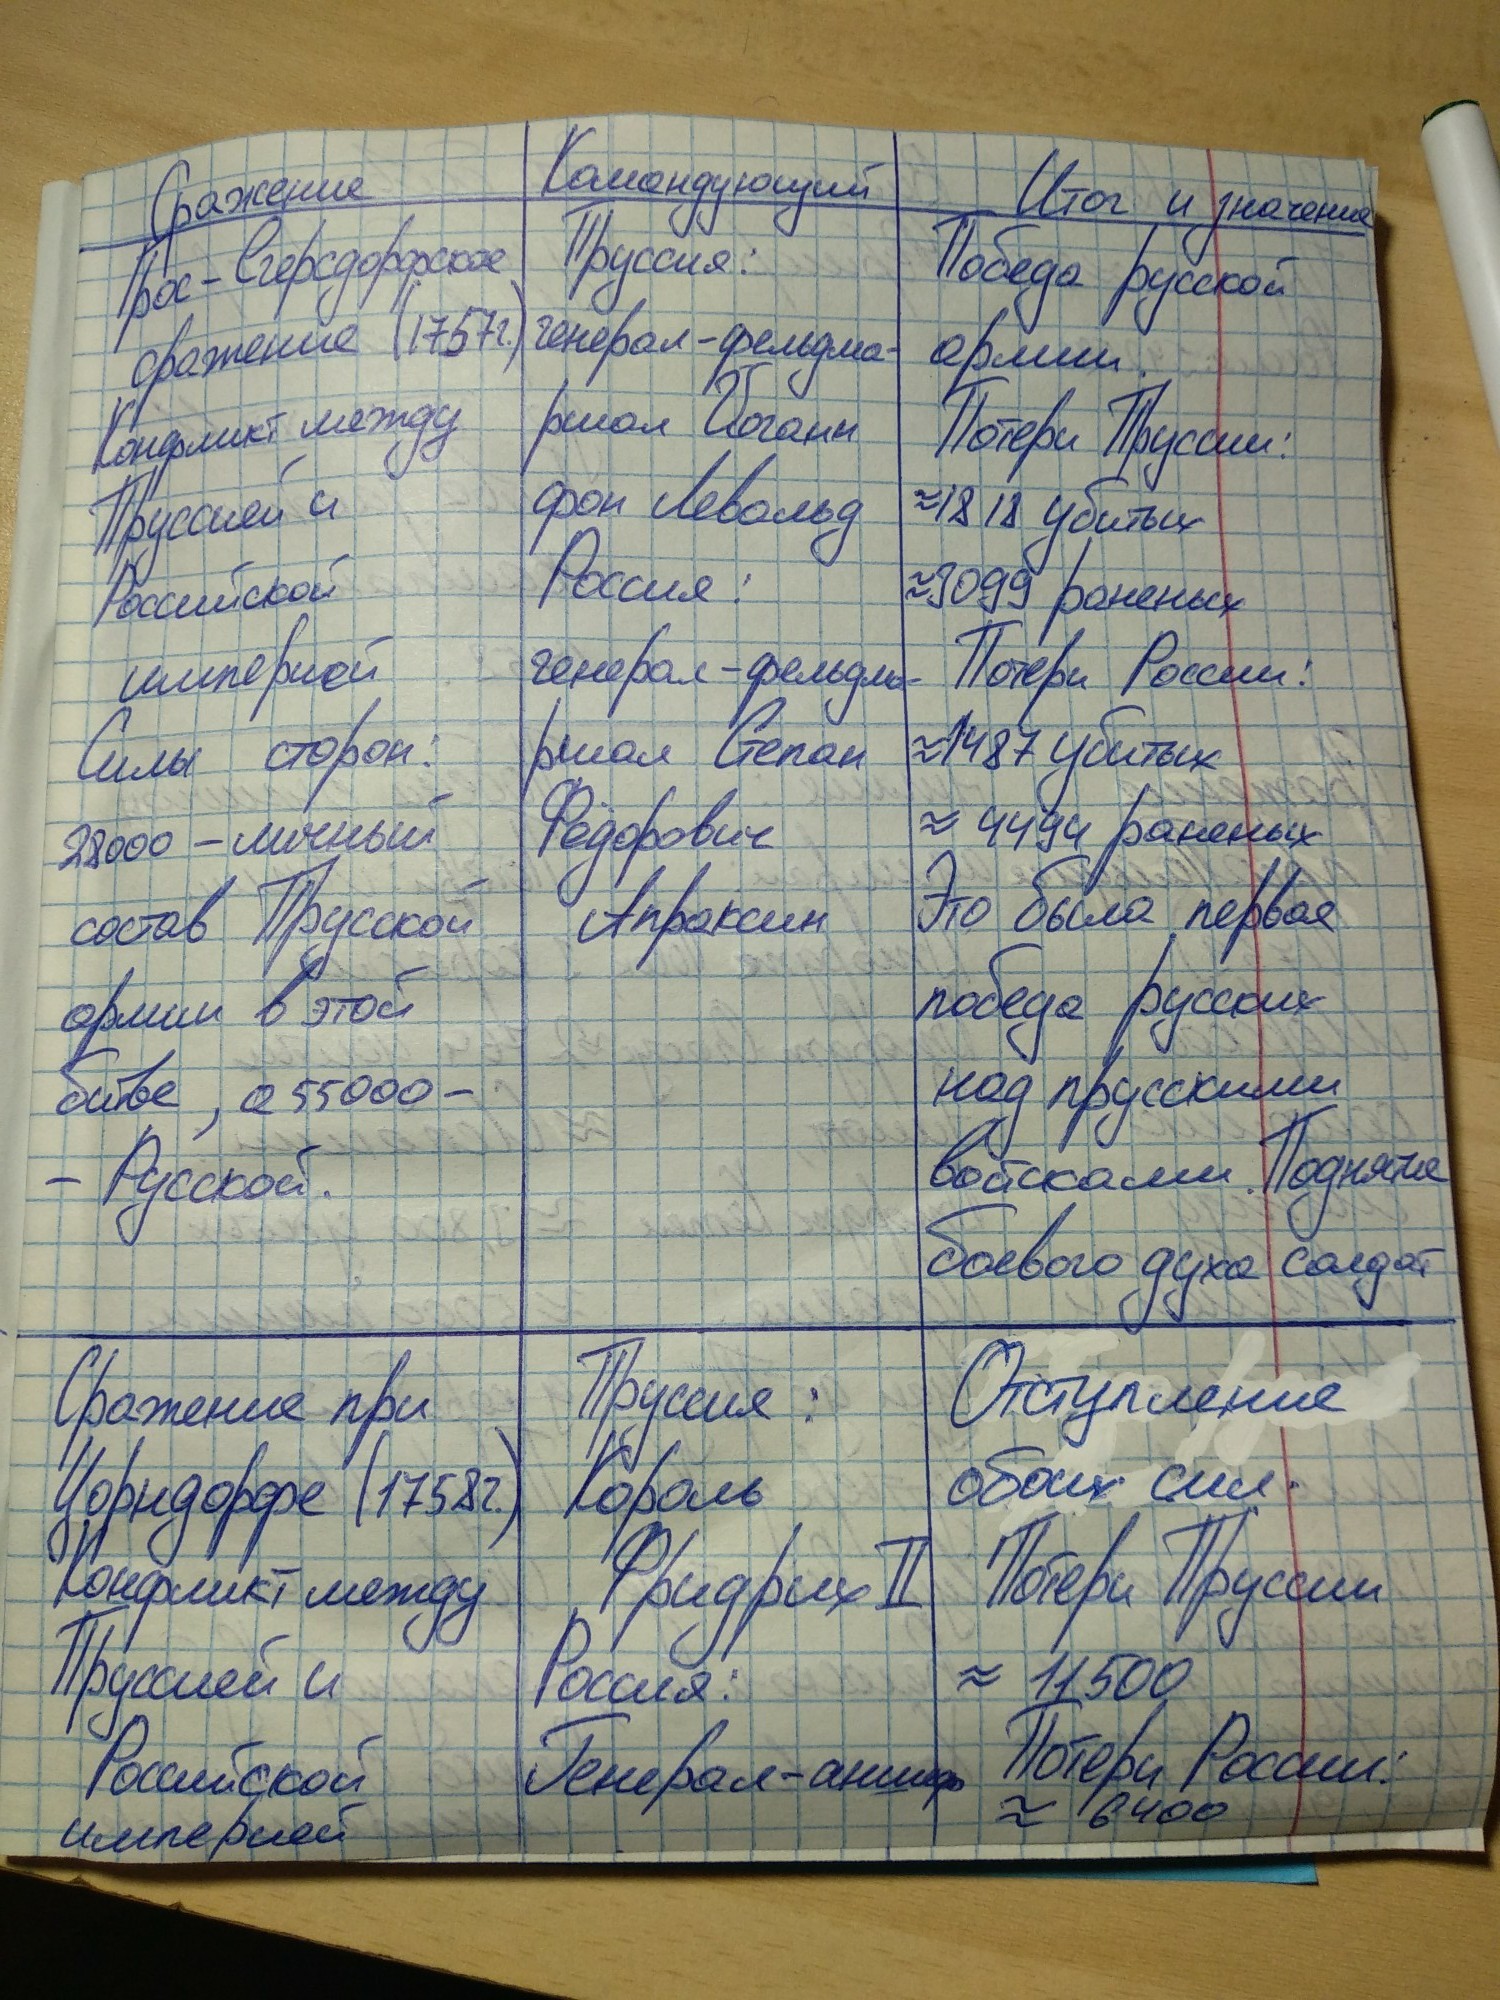 Сражение
Командующий
Итог и значение
Грос-Егерсдорфское
сражение (1757г.)
Конфликт между
Пруссией и
Российской
империей
Силы сторон:
28000 - личный
состав Прусской
армии в этой
битве, а 55000 -
- Русской.
Пруссия:
генерал-фельдма-
ршал Йоганн
фон Левальд
Россия:
генерал-фельдма-
ршал Степан
Фёдорович
Апраксин
Победа русской
армии.
Потери Пруссии:
≈1818 убитых
≈3099 раненых
Потери России:
≈1487 убитых
≈ 4494 раненых
Это была первая
победа русских
над прусскими
войсками. Поднятие
боевого духа солдат
Сражение при
Цорндорфе (1758г.)
Конфликт между
Пруссией и
Российской
империей
Пруссия:
Король
Фридрих II
Россия:
Генерал-аншеф
Отступление
обоих сил.
Потери Пруссии
≈ 11500
Потери России:
≈ 6400